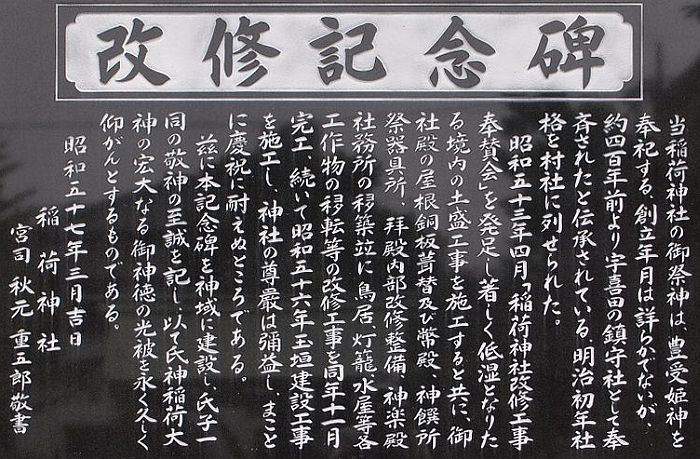 改修記念碑
当稲荷神社の御祭神は、豊受姫神を
奉祀する、創立年月は詳らかでないが、
約四百年前より宇喜田の鎮守社として奉
斉されたと伝承されている 明治初年社
格を村社に列せられた。
昭和五十三年四月「稲荷神社改修工事
奉賛会」を発足し著しく低湿となりた
る境内の土盛工事を施工すると共に、御
社殿の屋根銅板葺替及び幣殿、神饌所
祭器具所、拝殿内部改修整備、神楽殿
社務所の移築竝に鳥居、灯籠水屋等各
工作物の移転等の改修工事を同年十一月
完工、続いて昭和五十六年玉垣建設工事
を施工し、神社の尊厳は彌益しまこと
に慶祝に耐えぬところである。
茲に本記念碑を神域に建設し、氏子一
同の敬神の至誠を記し、以て氏神稲荷大
神の宏大なる御神徳の光被を永く久しく
仰がんとするものである。
昭和五十七年三月吉日
稲荷神社
宮司 秋元 重五郎敬書